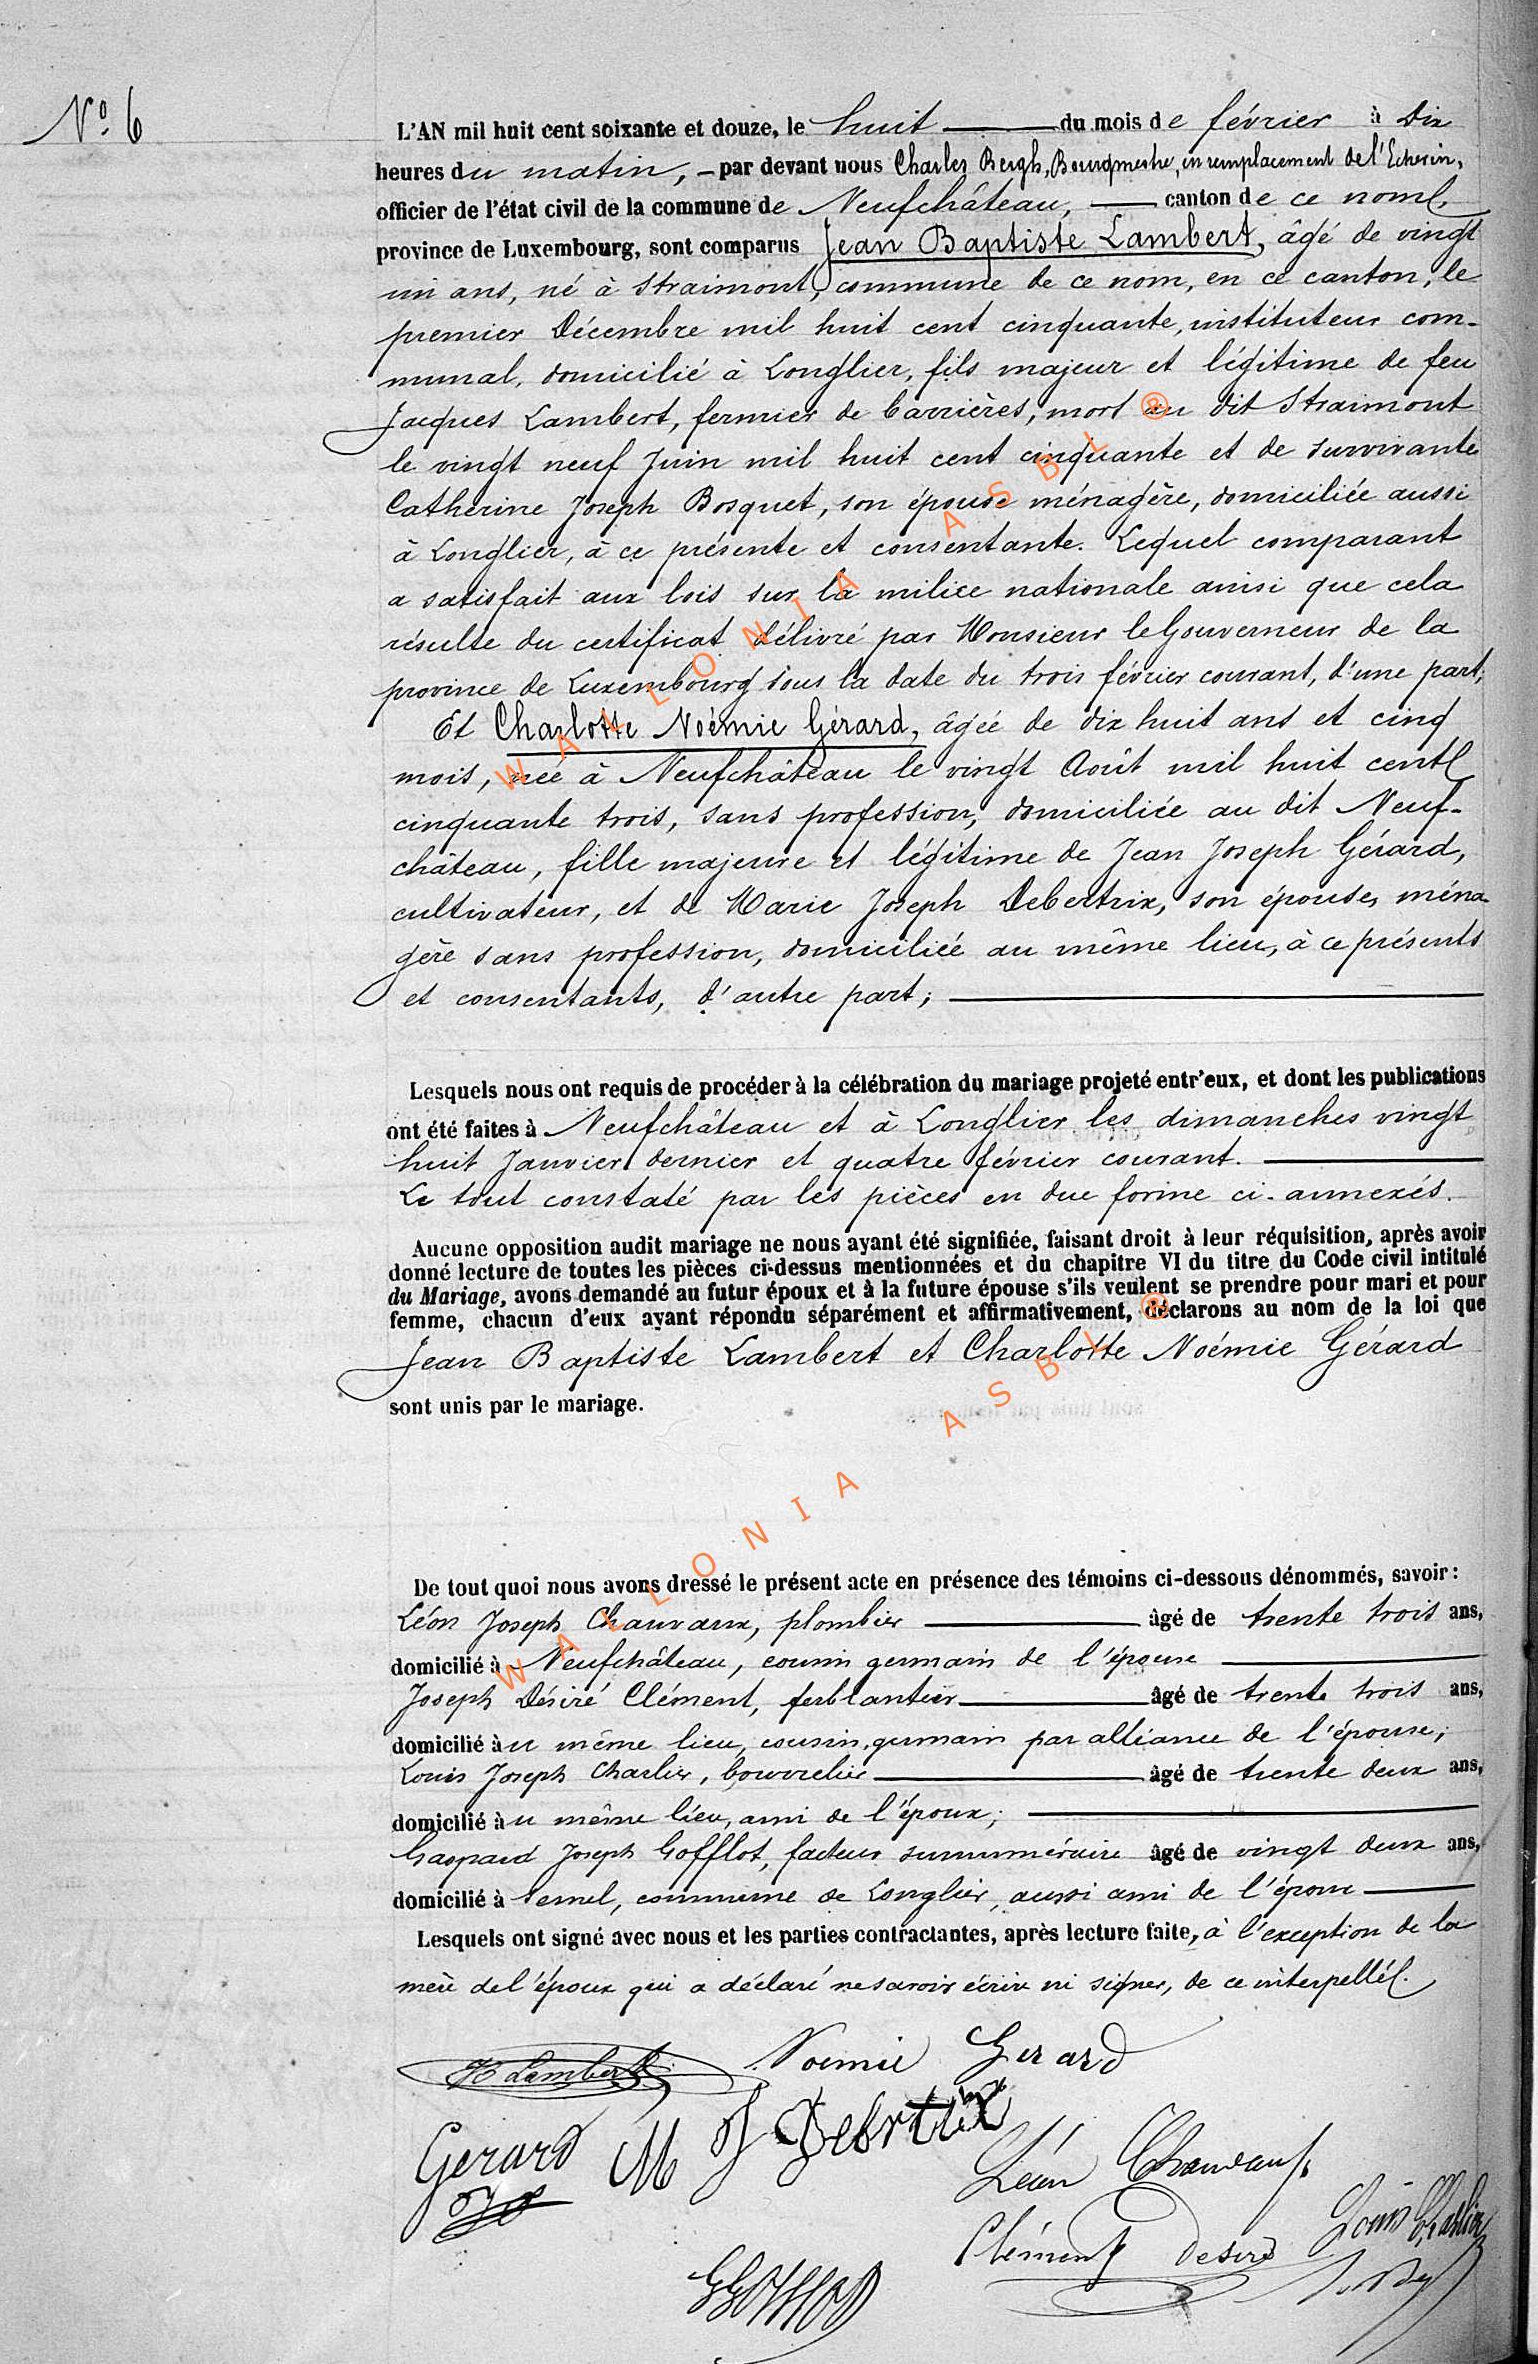 Nº 6
L'AN mil huit cent soixante et douze, le huit du mois de février à Dix
heures du matin, – par devant nous Charles Bergh, Bourgmestre, en remplacement de l'Echevin,
officier de l'état civil de la commune de Neufchâteau, canton de ce nom,
province de Luxembourg, sont comparus Jean Baptiste Lambert, âgé de vingt
un ans, né à Straimont, commune de ce nom, en ce canton, le
premier Décembre mil huit cent cinquante, instituteur com-
munal, domicilié à Longlier, fils majeur et légitime de feu
Jacques Lambert, fermier de barrières, mort au dit Straimont
le vingt neuf Juin mil huit cent cinquante et de survivante
Catherine Joseph Bosquet, son épouse ménagère, domiciliée aussi
à Longlier, à ce présente et consentante. Lequel comparant
a satisfait aux lois sur la milice nationale ainsi que cela
résulte du certificat délivré par Monsieur le Gouverneur de la
province de Luxembourg sous la date du trois février courant, d'une part;
Et Charlotte Noémie Gérard, âgée de dix huit ans et cinq
mois, née à Neufchâteau le vingt Août mil huit cent
cinquante trois, sans profession, domiciliée au dit Neuf-
château, fille majeure et légitime de Jean Joseph Gérard,
cultivateur, et de Marie Joseph Debertrix, son épouse, ména-
gère sans profession, domiciliée au même lieu, à ce présents
et consentants, d'autre part;
Lesquels nous ont requis de procéder à la célébration du mariage projeté entr'eux, et dont les publications
ont été faites à Neufchâteau et à Longlier les dimanches vingt
huit Janvier dernier et quatre février courant.
Le tout constaté par les pièces en due forme ci-annexés.
Aucune opposition audit mariage ne nous ayant été signifiée, faisant droit à leur réquisition, après avoir
donné lecture de toutes les pièces ci-dessus mentionnées et du chapitre VI du titre du Code civil intitulé
du Mariage, avons demandé au futur époux et à la future épouse s'ils veulent se prendre pour mari et pour
femme, chacun d'eux ayant répondu séparément et affirmativement, déclarons au nom de la loi que
Jean Baptiste Lambert et Charlotte Noémie Gérard
sont unis par le mariage.
De tout quoi nous avons dressé le présent acte en présence des témoins ci-dessous dénommés, savoir :
Léon Joseph Chauvaux, plombier âgé de trente trois ans,
domicilié à Neufchâteau, cousin germain de l'épouse
Joseph Désiré Clément, ferblantier âgé de trente trois ans,
domicilié au même lieu, cousin germain par alliance de l'épouse;
Louis Joseph Charlier, bourrelier âgé de trente deux ans,
domicilié au même lieu, ami de l'époux;
Gaspard Joseph Gofflot, facteur surnuméraire âgé de vingt deux ans,
domicilié à Semel, commune de Longlier, aussi ami de l'époux
Lesquels ont signé avec nous et les parties contractantes, après lecture faite, à l'exception de la
mère de l'époux qui a déclaré ne savoir écrire ni signer, de ce interpellée.
Lambert Noémie Gérard
Gerard M J Debertrix
Léon Chauvaux
Clément Desiré Louis Charlier
GGofflot
WALLONIA ASBL ®
WALLONIA ASBL ®